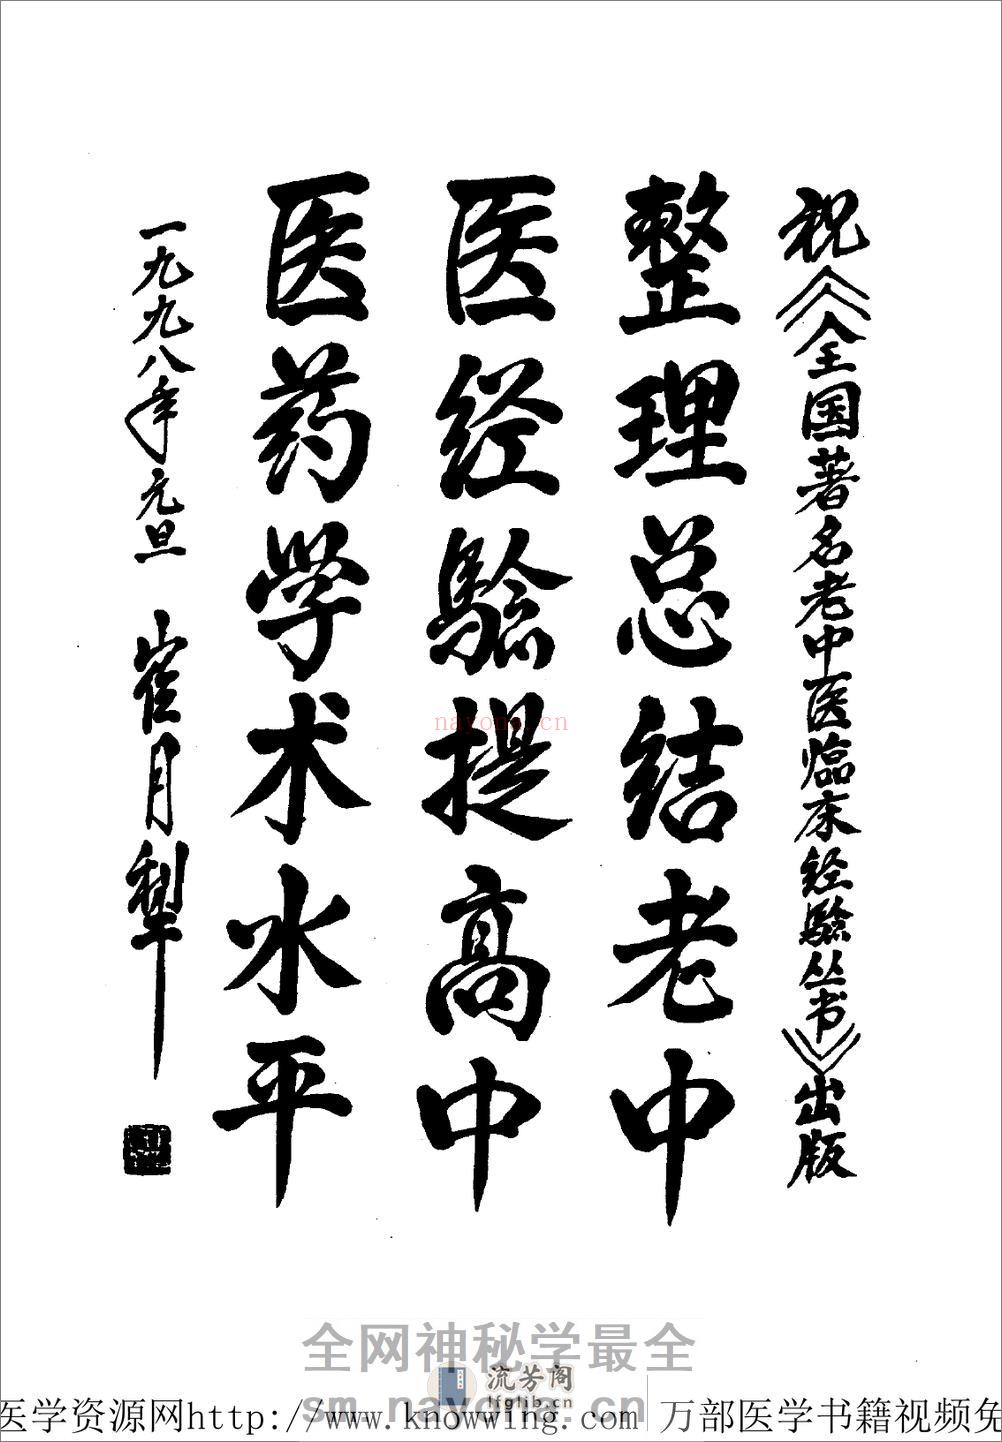 祝《全国著名老中医临床经验丛书》出版
整理总结老中
医经验提高中
医药学术水平
一九九八年元旦 崔月犁
nayona.cn
全网神秘学最全
流芳阁
lfglib.cn
sm.nayona.cn
医学资源网http://www.knowwing.com 万部医学书籍视频免